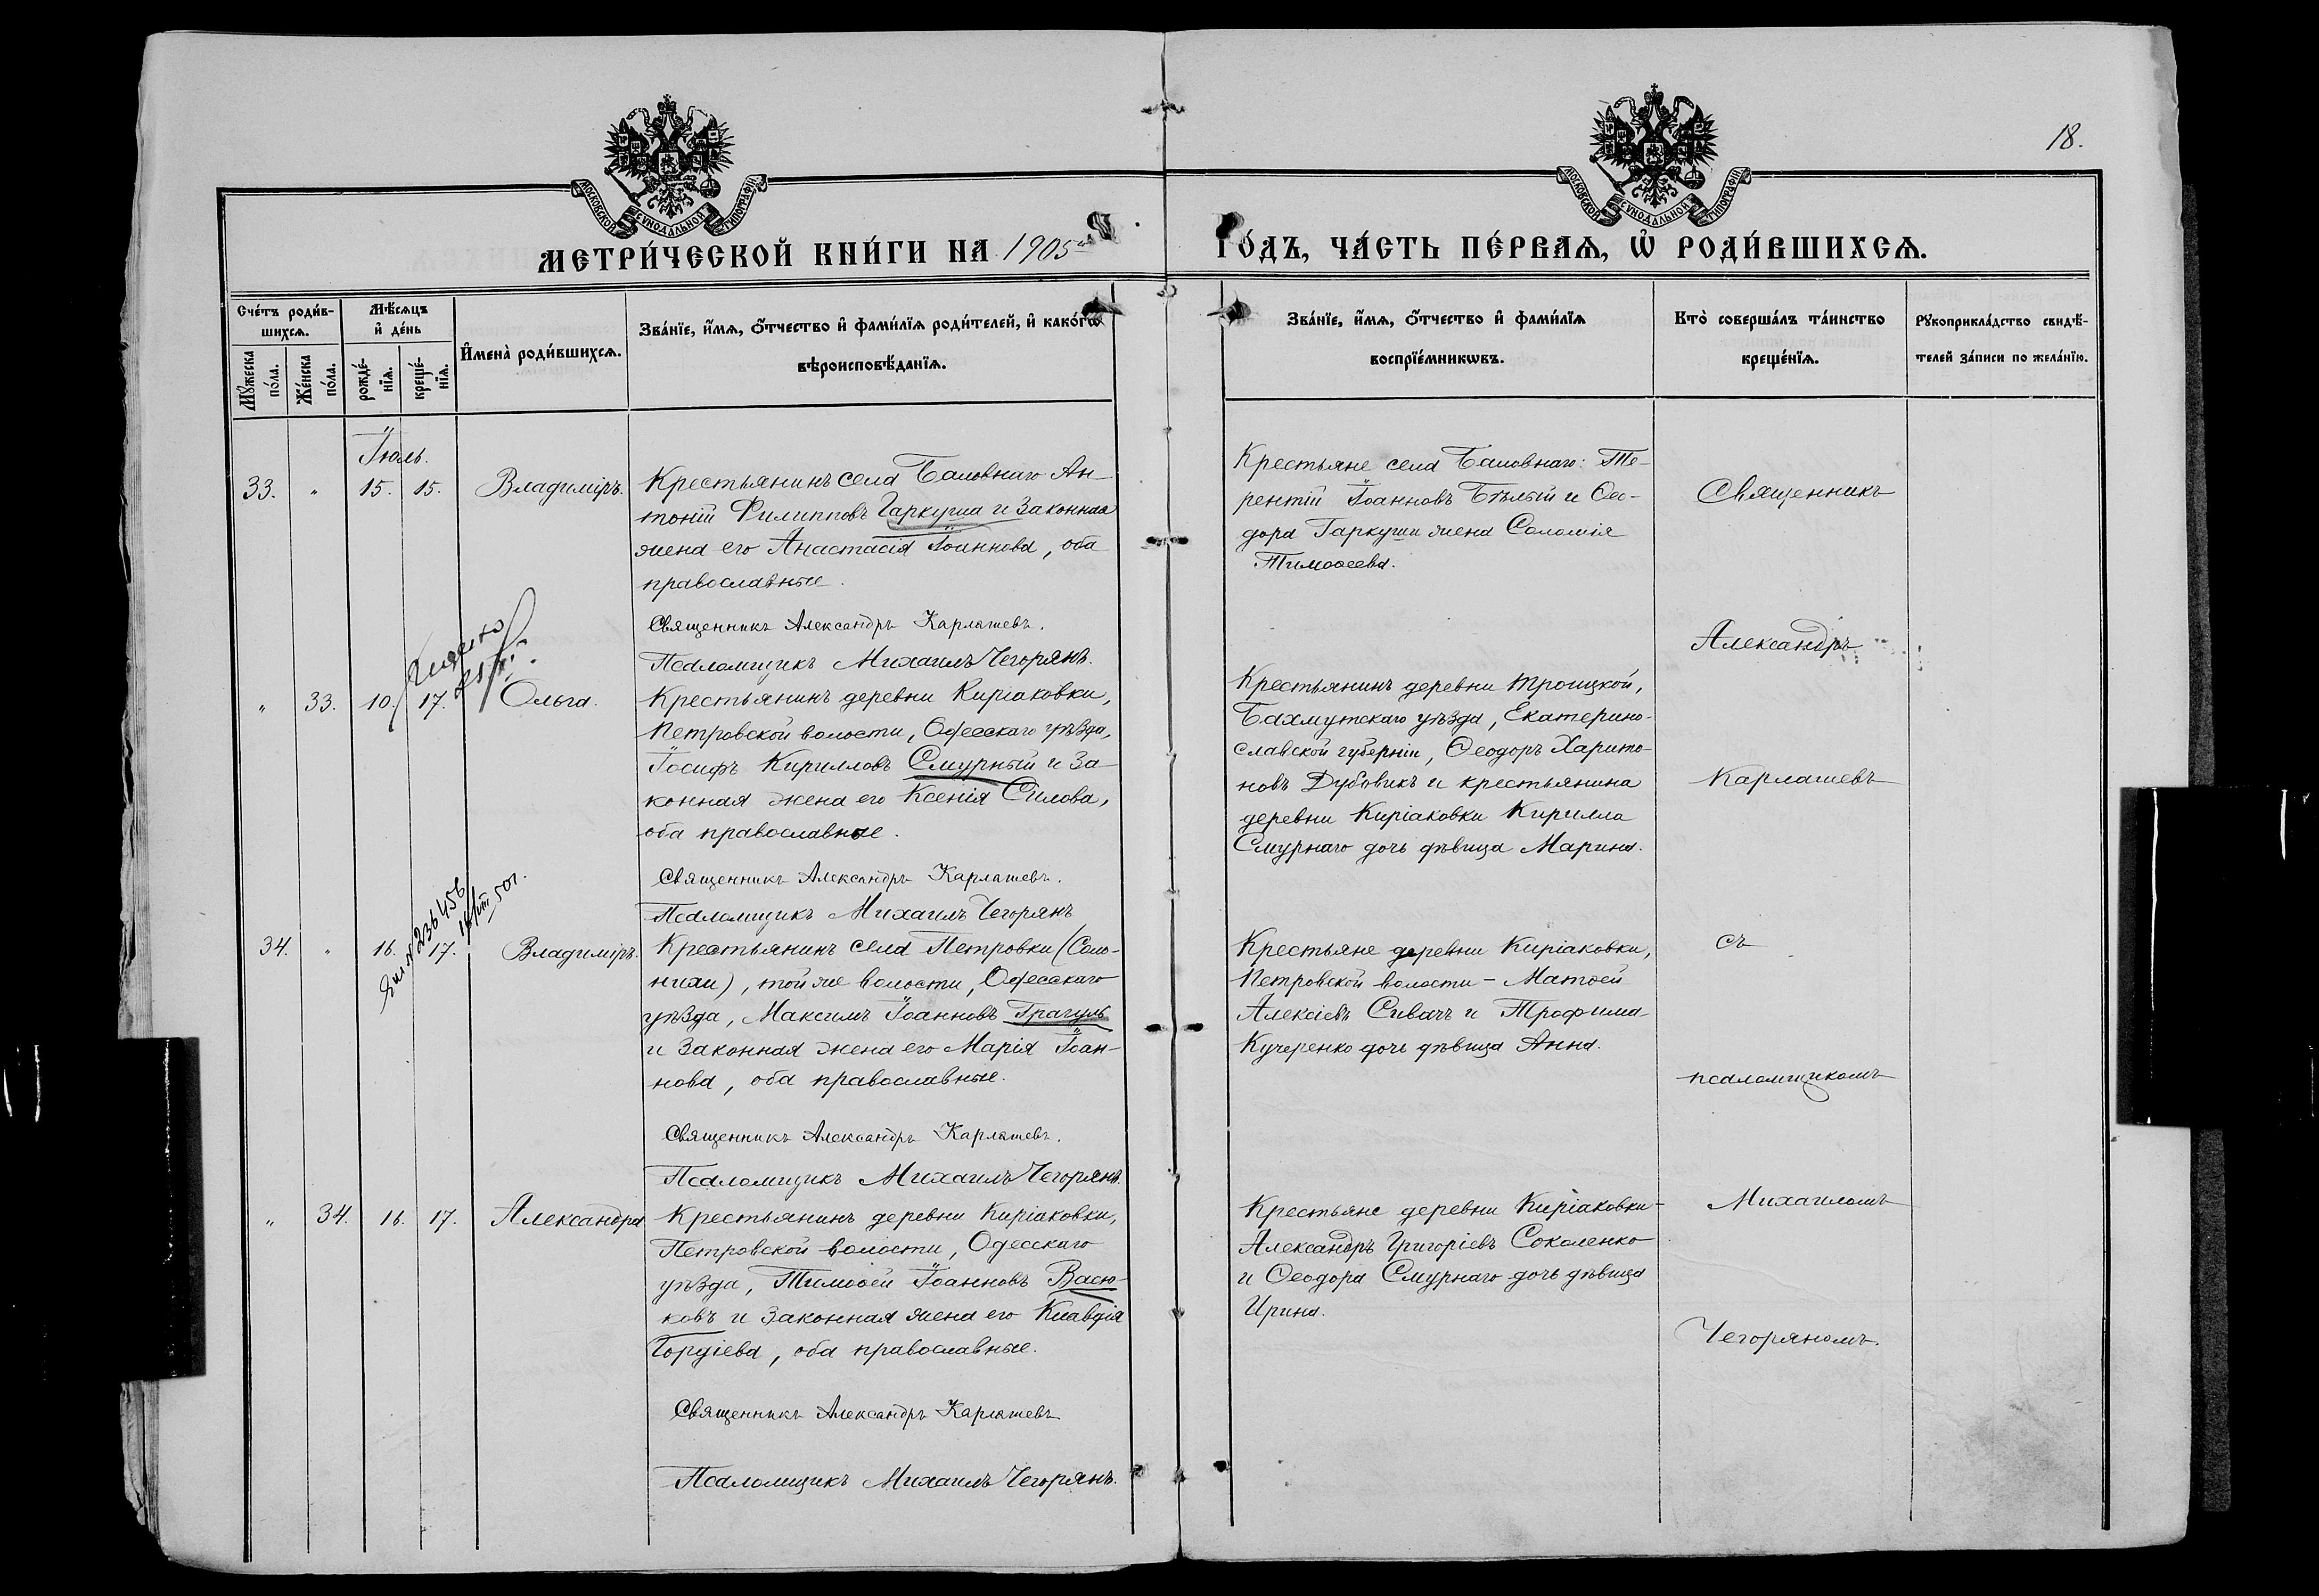 18.
МОСКОВСКОЙ СУНОДАЛЬНОЙ ТИПОГРАФІИ
МОСКОВСКОЙ СУНОДАЛЬНОЙ ТИПОГРАФІИ
МЕТРИ́ЧЕСКОЙ КНИ́ГИ НА 1905
ГО́ДЪ, ЧА́СТЬ ПЕ́РВАѦ, Ѡ РОДИ́ВШИХСѦ.
Сче́тъ роди́в-
шихсѧ.
Мꙋ́жеска
по́ла.
Же́нска
по́ла.
Мѣ́сѧцъ
и де́нь
рожде́-
нїѧ.
креще́-
нїѧ.
Имена̀ роди́вшихсѧ.
Зва́нїе, и́мѧ, ѻ́тчество и фами́лїѧ роди́телей, и како́гѡ
вѣроисповѣ́данїѧ.
Зва́нїе, и́мѧ, ѻ́тчество и фами́лїѧ
воспрїе́мникѡвъ.
Кто̀ соверша́лъ та́инство
креще́нїѧ.
Рꙋкоприкла́дство свидѣ́-
телей за́писи по жела́нїю.
Іюль.
33. " 15. 15. Владиміръ.
Крестьянинъ села Баловнаго Ан-
тоній Филипповъ Гаркуша и законная
жена его Анастасія Іоаннова, оба
православные.
Священникъ Александръ Карлашевъ.
Псаломщикъ Михаилъ Чегорянъ.
Крестьяне села Баловнаго: Те-
рентій Іоанновъ Бѣлый и Ѳео-
дора Гаркуши жена Соломія
Тимоѳеева.
" 33. 10. 17. Ольга.
Крестьянинъ деревни Киріаковки,
Петровской волости, Одесскаго уѣзда,
Іосифъ Кирилловъ Смурный и за-
конная жена его Ксенія Силова,
оба православные.
Священникъ Александръ Карлашевъ.
Псаломщикъ Михаилъ Чегорянъ
Крестьянинъ деревни Троицкой,
Бахмутскаго уѣзда, Екатерино-
славской губерніи, Ѳеодоръ Харито-
новъ Дубовикъ и крестьянина
деревни Киріаковки Кирилла
Смурнаго дочь дѣвица Марина.
236456
34. " 16. 17. Владиміръ.
Крестьянинъ села Петровки (Соло-
нихи), той же волости, Одесскаго
уѣзда, Максимъ Іоанновъ Грагуль
и законная жена его Марія Іоан-
нова, оба православные.
Священникъ Александръ Карлашевъ.
Псаломщикъ Михаилъ Чегорянъ.
Крестьяне деревни Киріаковки,
Петровской волости - Матѳей
Алексіевъ Сивачъ и Трофима
Кучеренко дочь дѣвица Анна.
" 34. 16. 17. Александра
Крестьянинъ деревни Киріаковки,
Петровской волости, Одесскаго
уѣзда, Тимоѳей Іоанновъ Васю-
ковъ и законная жена его Клавдія
Гордіева, оба православные.
Священникъ Александръ Карлашевъ
Псаломщикъ Михаилъ Чегорянъ.
Крестьяне деревни Киріаковки-
Александръ Григоріевъ Соколенко
и Ѳеодора Смурнаго дочь дѣвица
Ирина.
Священникъ
Александръ
Карлашевъ
съ
псаломщикомъ
Михаиломъ
Чегоряномъ.